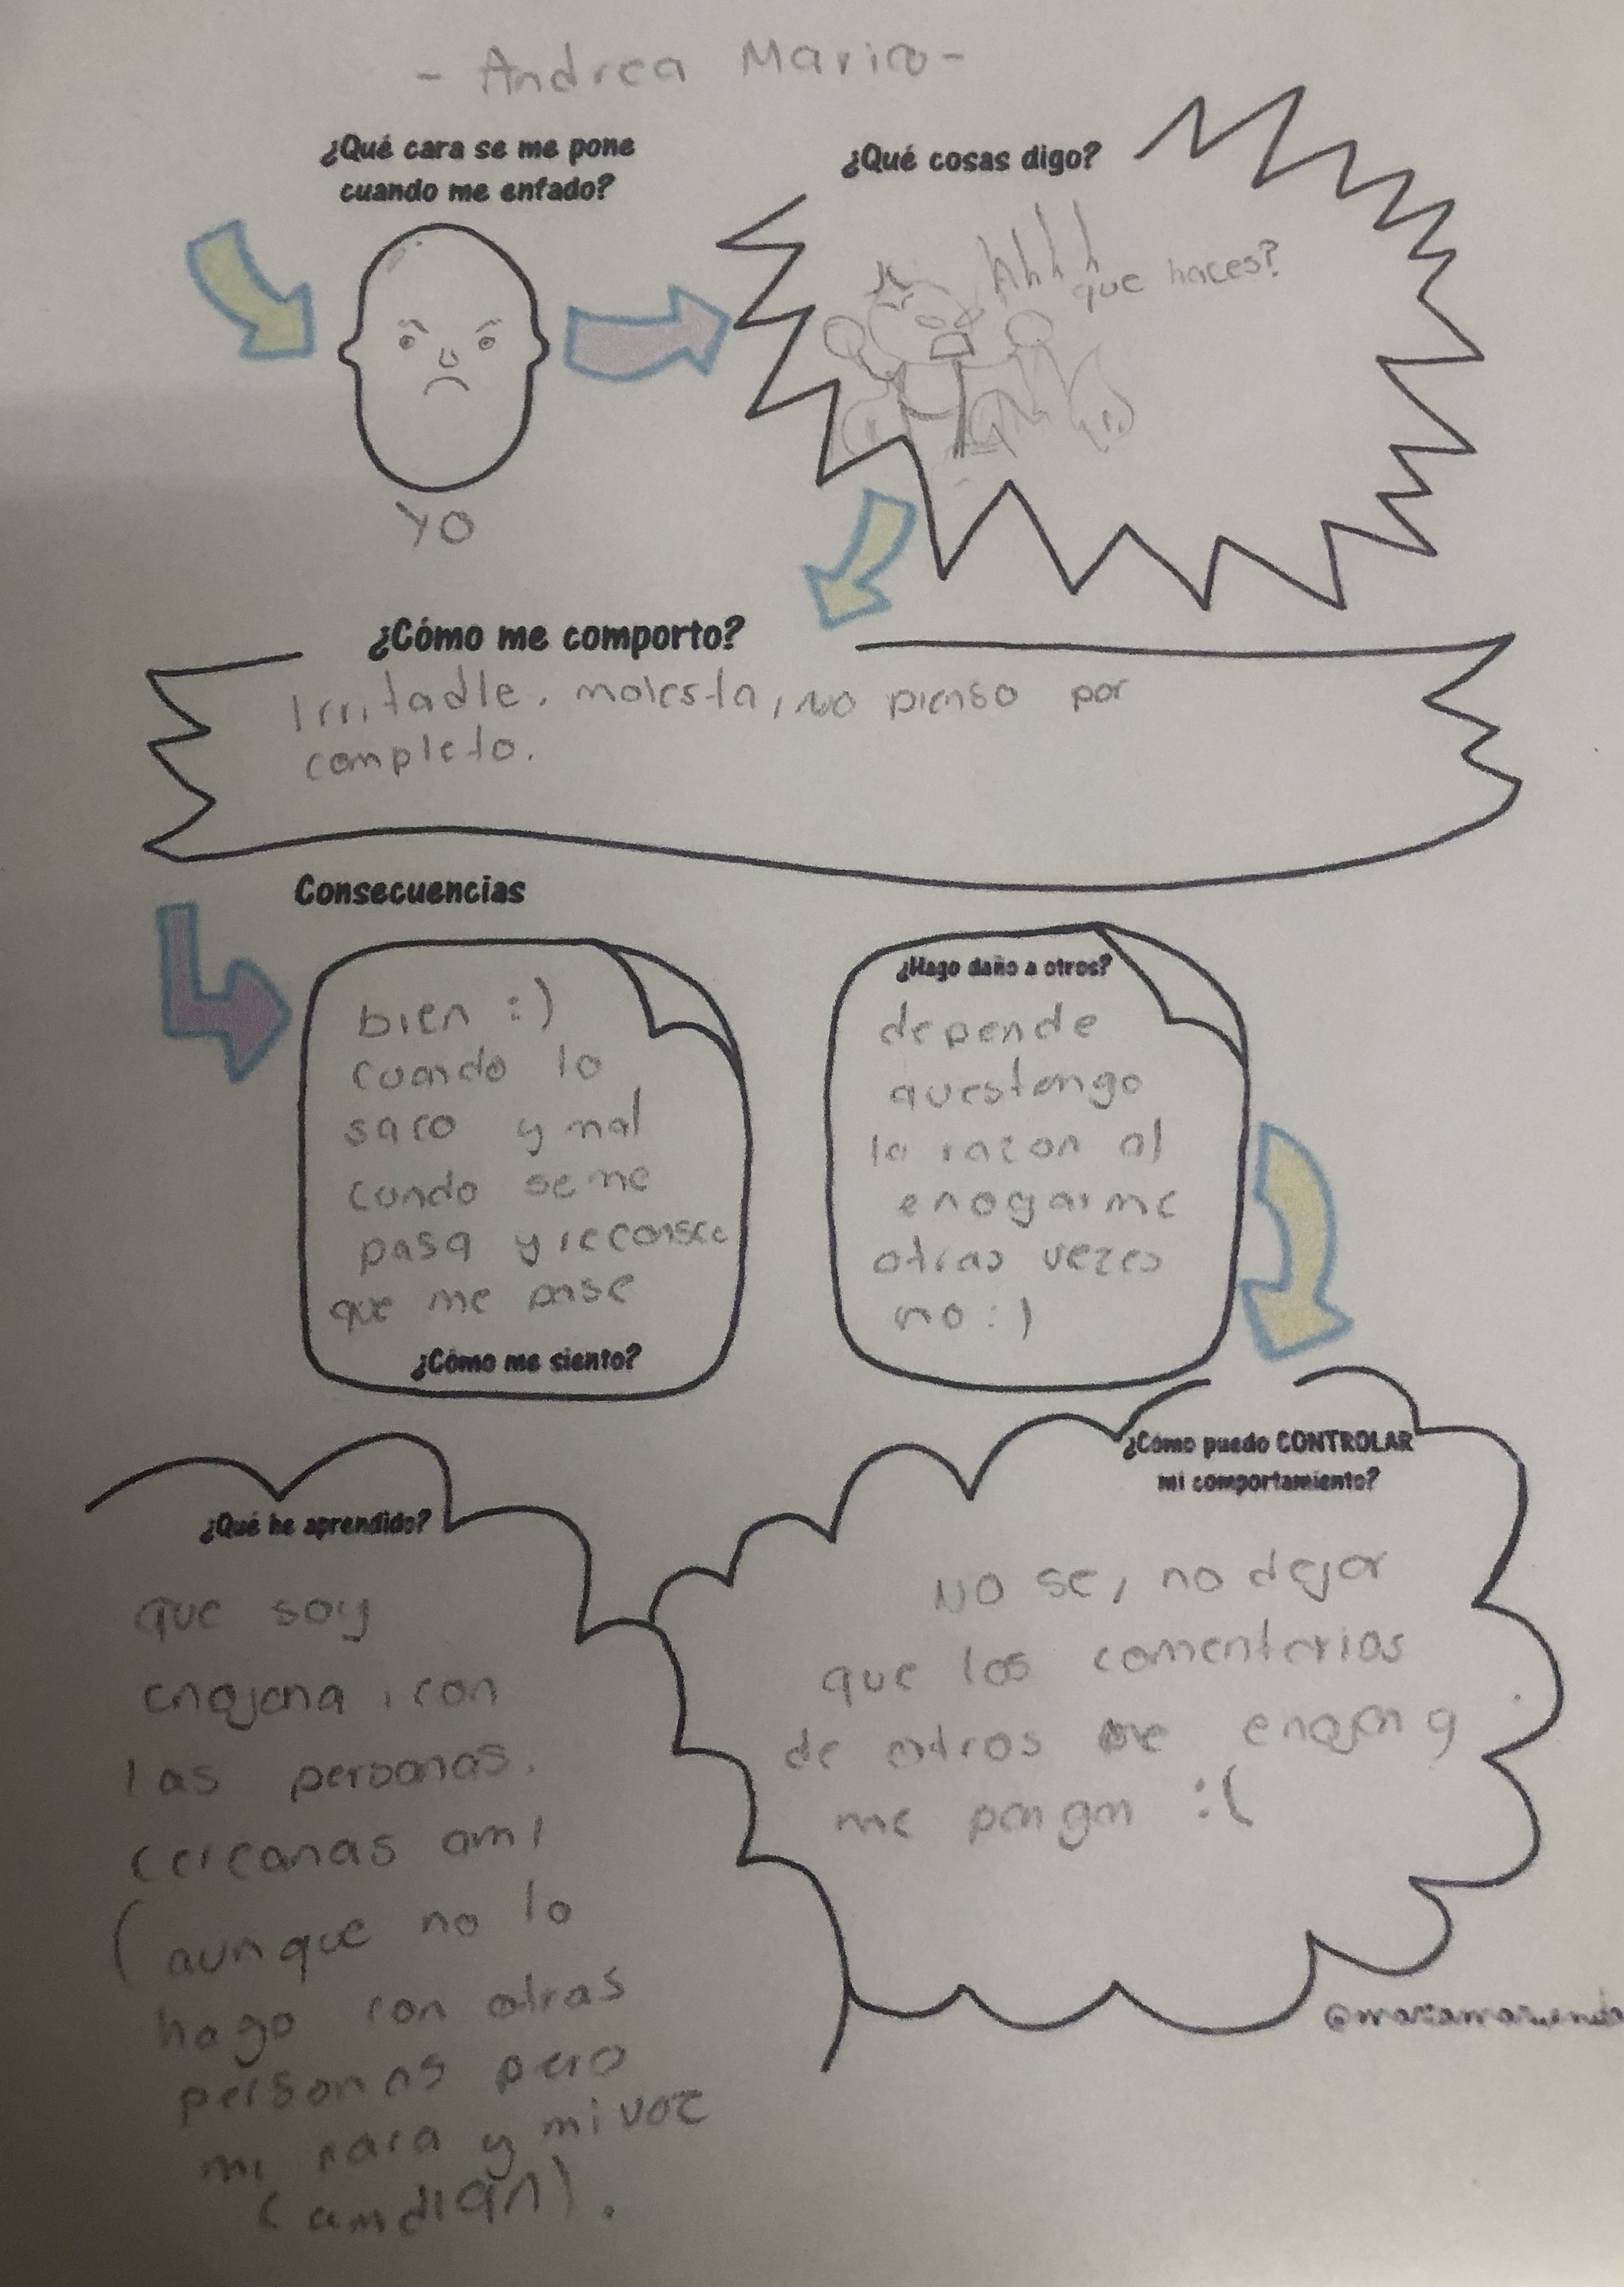 - Andrea Marico -
¿Qué cara se me pone
cuando me enfado?
YO
¿Qué cosas digo?
Ahhh
que haces?
¿Cómo me comporto?
Irritadle, molesta, no pienso por
completo.
Consecuencias
bien :)
cuando lo
saco y mal
cundo se me
pasa y reconsce
que me pase
¿Cómo me siento?
¿Hago daño a otros?
depende
questengo
la razon al
enogarme
otras vezes
no :)
¿Cómo puedo CONTROLAR
mi comportamiento?
NO se, no dejar
que los comentarios
de otros me enojan y
me pongan :(
¿Qué he aprendido?
que soy
enojona, con
las personas.
cercanas ami
(aunque no lo
hago con otras
personas pero
mi cara y mi voz
camdian).